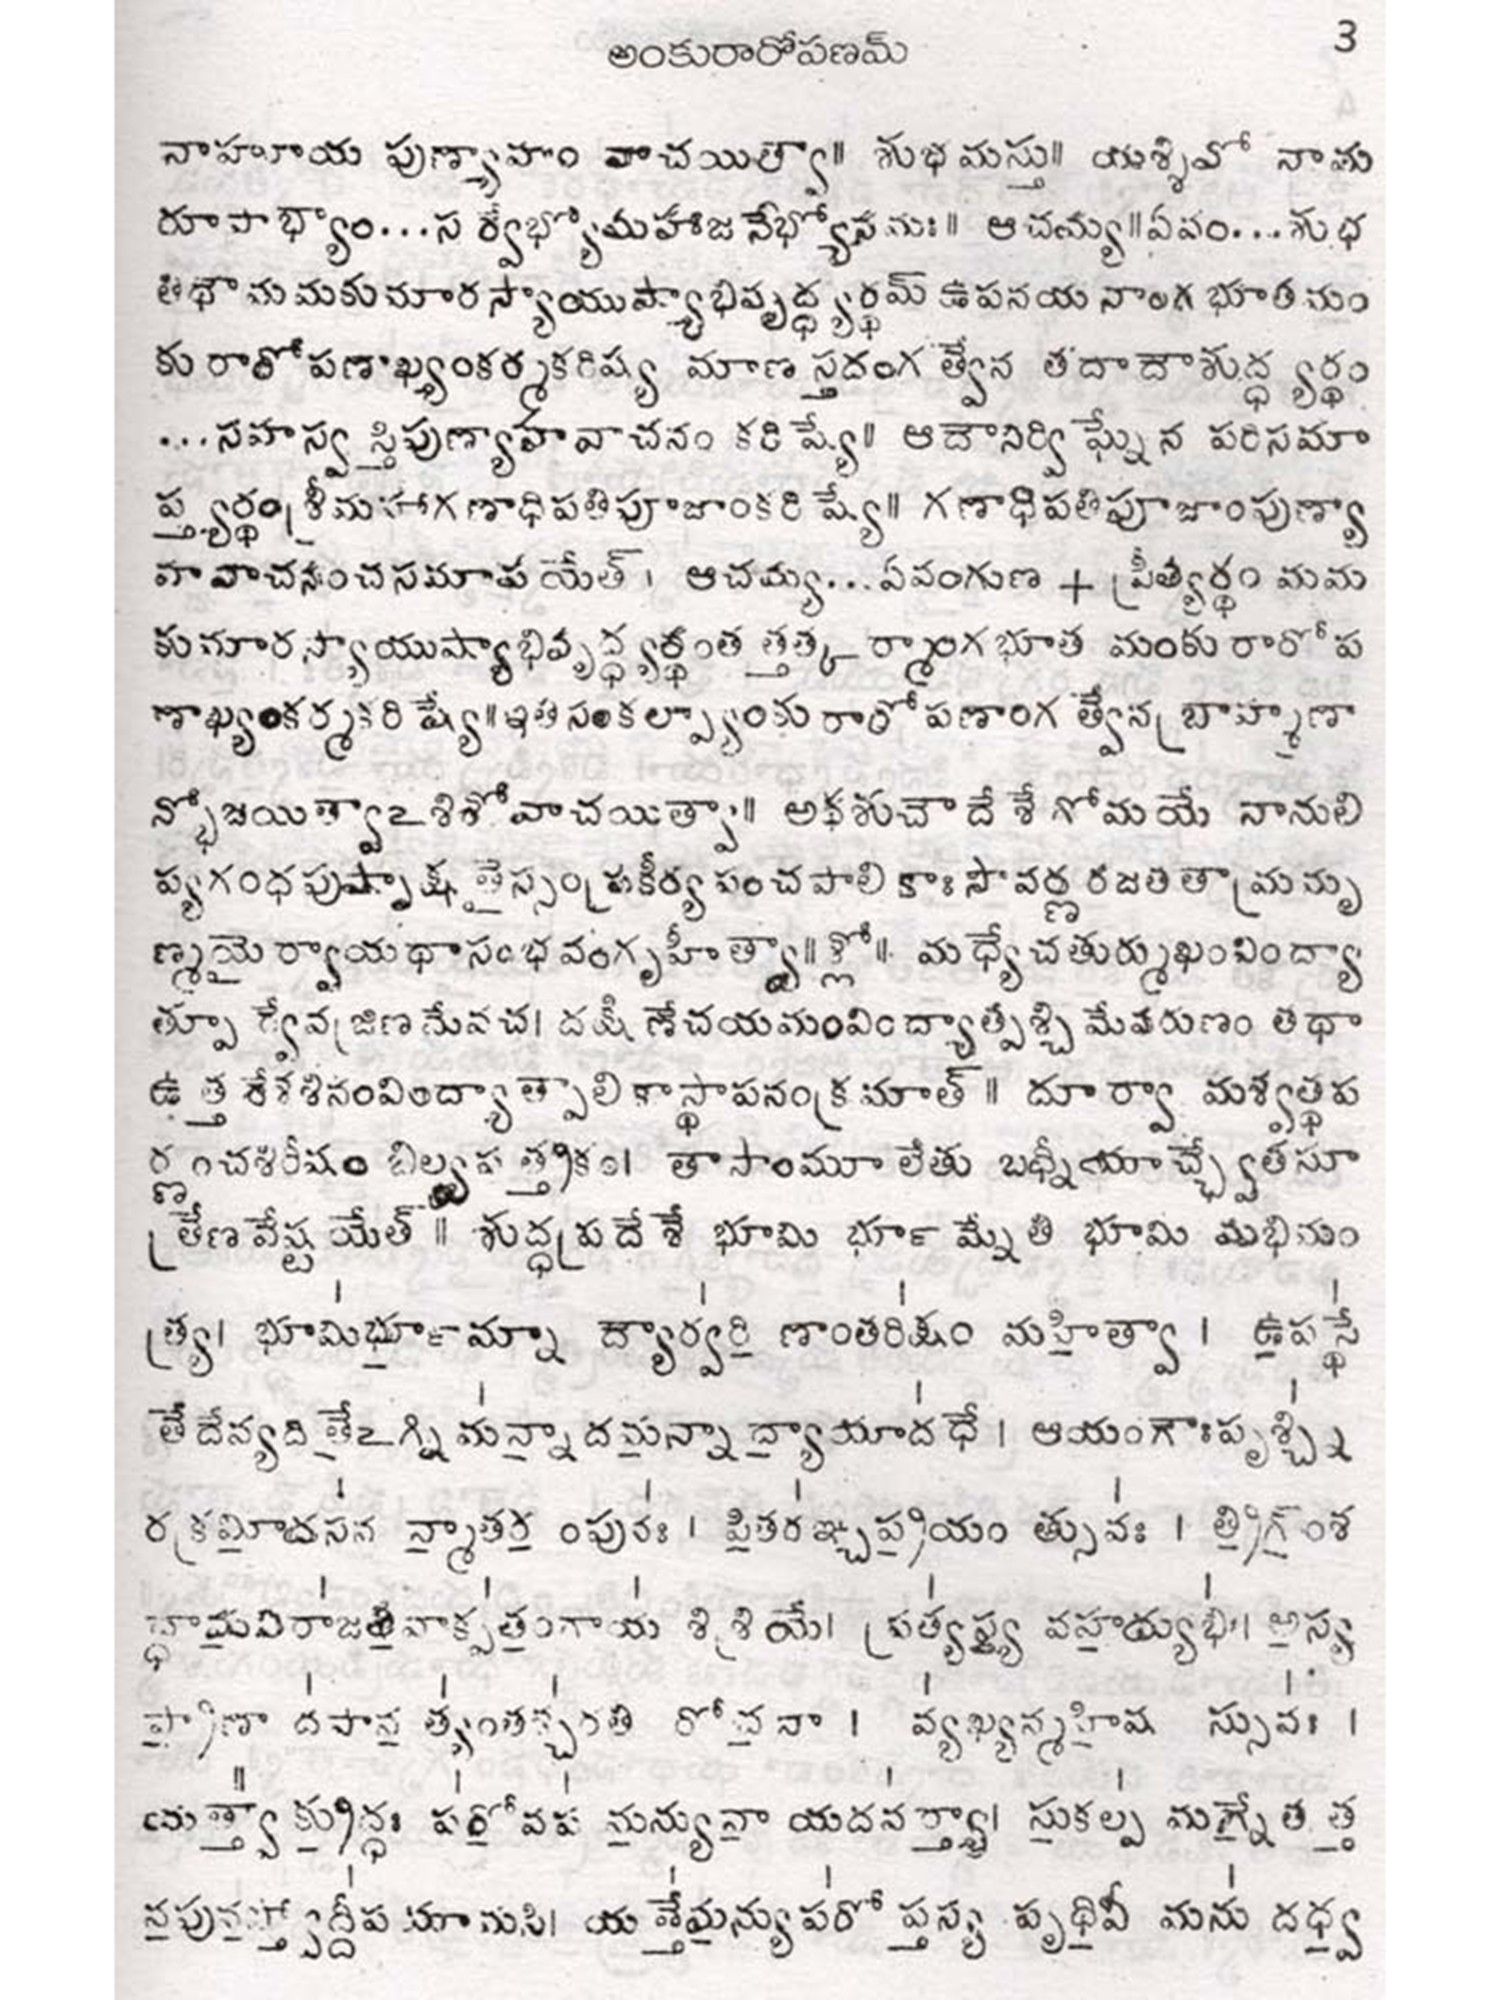 అంకురారోపణమ్ 3
నాహూయ పుణ్యాహం వాచయిత్వా॥ శుభమస్తు॥ యశ్శివో నామ
రూపాభ్యాం...సర్వేభ్యోమహాజనేభ్యోనమః॥ ఆచమ్య॥ఏవం...శుభ
తిథౌమమకుమారస్యాయుష్యాభివృద్ధ్యర్థమ్ ఉపనయనాంగభూతమం
కురారోపణాఖ్యంకర్మకరిష్యమాణస్తదంగత్వేన తదాదౌశుద్ధ్యర్థం
...సహస్వస్తిపుణ్యాహవాచనం కరిష్యే॥ ఆదౌనిర్విఘ్నేన పరిసమా
ప్త్యర్థంశ్రీమహాగణాధిపతిపూజాంకరిష్యే॥ గణాధిపతిపూజాంపుణ్యా
హవాచనంచసమాపయేత్। ఆచమ్య...ఏవంగుణ + ప్రీత్యర్థం మమ
కుమారస్యాయుష్యాభివృద్ధ్యర్థంతత్తత్కర్మాంగభూత మంకురారోప
ణాఖ్యంకర్మకరిష్యే॥ఇతిసంకల్ప్యాంకురారోపణాంగత్వేనబ్రాహ్మణా
న్భోజయిత్వాఽశిషోవాచయిత్వా॥ అథశుచౌదేశే గోమయేనానులి
ప్యగంధపుష్పాక్షతైస్సంప్రకీర్యపంచపాలికాఃసౌవర్ణరజతతామ్రమృ
ణ్మయైర్వాయథాసంభవంగృహీత్వా॥శ్లో॥ మధ్యేచతుర్ముఖంవింద్యా
త్పూర్వేవజ్రిణమేవచ। దక్షిణేచయమంవింద్యాత్పశ్చిమేవరుణం తథా
ఉత్తరేశశినంవింద్యాత్పాలికాస్థాపనంక్రమాత్॥ దూర్వా మశ్వత్థప
ర్ణంచశిరీషం బిల్వపత్త్రికం। తాసాంమూలేతు బధ్నీయాచ్ఛ్వేతసూ
త్రేణవేష్టయేత్॥ శుద్ధప్రదేశే భూమి ర్భూమ్నేతి భూమి మభిమం
త్ర్య। భూమిర్భూమ్నా ద్యౌర్వరిణాంతరిక్షం మహిత్వా। ఉపస్థే
తేదేవ్యదితేఽగ్నిమన్నాదమన్నాద్యాయాదధే। ఆయంగౌఃపృశ్ని
రక్రమీదసన న్మాతరం పునః। పితరఞ్చప్రయం త్సువః। త్రిగ్ంశ
ద్ధామవిరాజతివాక్పతంగాయ శిశ్రియే। ప్రత్యస్య వహద్యుభిః। అస్య
ప్రాణా దపానత్యంతశ్చరతి రోచనా। వ్యఖ్యన్మహిష స్సువః।
యత్త్వా క్రుద్ధః పరోవప మన్యునా యదవర్త్యా। సుకల్ప మగ్నేతత్త
వపునస్త్వోద్దీపయామసి। యత్తేమన్యుపరోప్తస్య పృథివీ మను దధ్వ